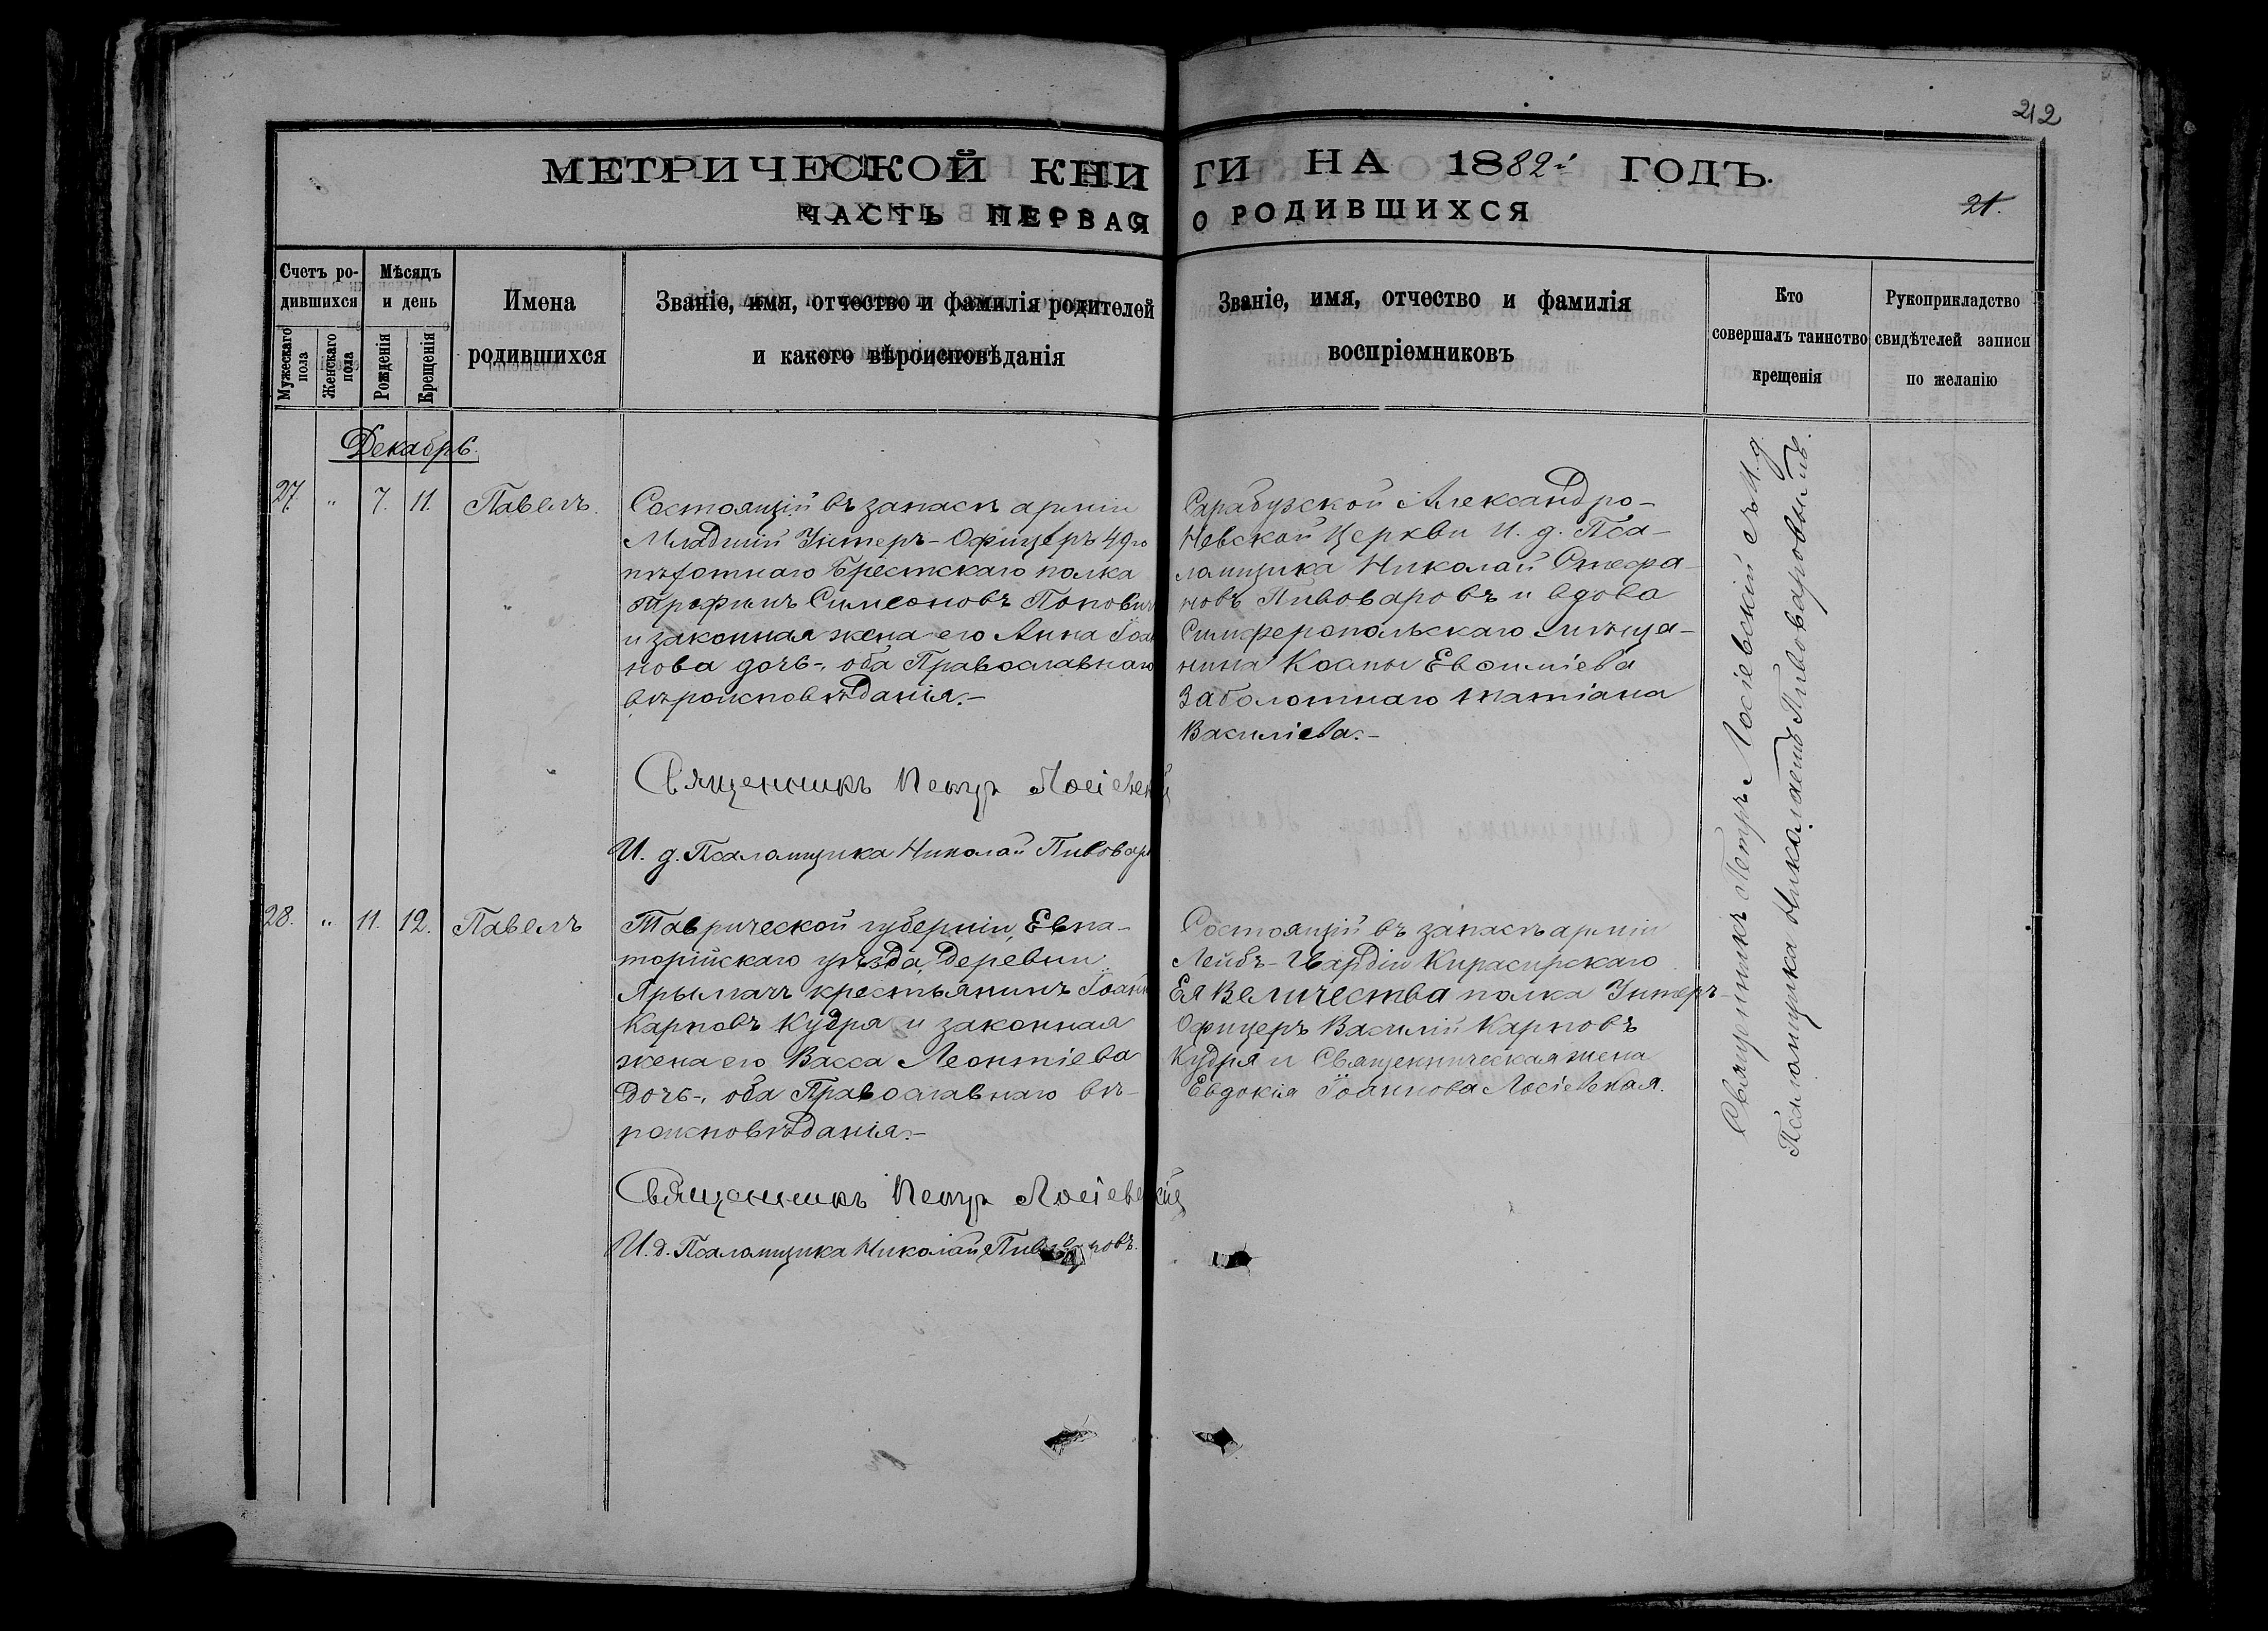 212
МЕТРИЧЕСКОЙ КНИГИ НА 1882й ГОДЪ.
ЧАСТЬ ПЕРВАЯ О РОДИВШИХСЯ
21.
Счетъ ро-
дившихся
Мужескаго
пола
Женскаго
пола
Мѣсяцъ
и день
Рожденія
Крещенія
Имена
родившихся
Званіе, имя, отчество и фамилія родителей
и какого вѣроисповѣданія
Званіе, имя, отчество и фамилія
воспріемниковъ
Кто
совершалъ таинство
крещенія
Рукоприкладство
свидѣтелей записи
по желанію
Декабрь.
27. " 7. 11. Павелъ.
Состоящій въ запасѣ арміи
Младшій Унтеръ-Офицеръ 49го
пѣхотнаго Брестскаго полка
Трофимъ Симеоновъ Попович
и законная жена его Анна Іоан
нова дочь-, оба Православнаго
вѣроисповѣданія.-
Священникъ Петръ Лосіевскій
И. д. Псаломщика Николай Пивовар
Сарабузской Александро-
Невской Церкви И. д. Пса-
ломщика Николай Стефа-
новъ Пивоваровъ и вдова
Симферопольскаго мѣща-
нина Косьмы Евѳиміева
Заболотнаго Татіана
Василіева.-
28. " 11. 12. Павелъ
Таврической губерніи, Евпа-
торійскаго уѣзда, Деревни
Ярымачъ крестьянинъ Іоанн
Карповъ Кудря и законная
жена его Васса Леонтіева
Дочь-, оба Православнаго вѣ-
роисповѣданія.-
Священникъ Петръ Лосіевскій
И. д. Псаломщика Николай Пив новъ.
Состоящій въ запасѣ арміи
Лейбъ-Гвардіи Кирасирскаго
Ея Величества полка Унтеръ-
Офицеръ Василій Карповъ
Кудря и Священническая жена
Евдокія Іоаннова Лосіевская.
Священникъ Петръ Лосіевскій съ И. д.
Псаломщика Николаемъ Пивоваровымъ.